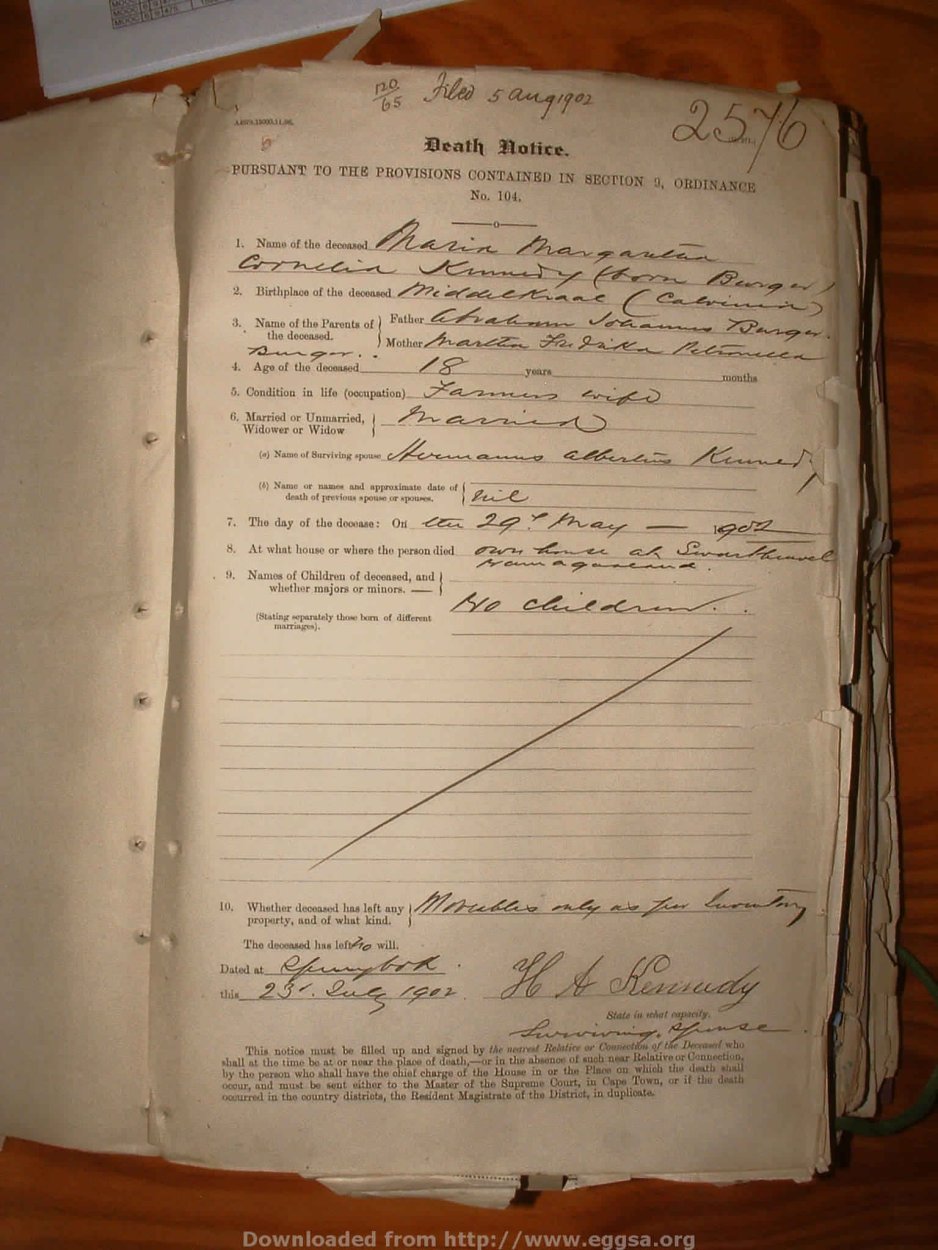 120/65 Filed 5 Aug 1902
2576
6
Death Notice.
PURSUANT TO THE PROVISIONS CONTAINED IN SECTION 9, ORDINANCE
No. 104.
1. Name of the deceased Maria Margaretha
Cornelia Kennedy (born Burger)
2. Birthplace of the deceased Middelkraal (Calvinia)
3. Name of the Parents of the deceased. Father Abraham Johannes Burger.
Mother Martha Fredrika Petronella
Burger.
4. Age of the deceased 18 years months
5. Condition in life (occupation) Farmers wife
6. Married or Unmarried, Widower or Widow Married
(a) Name of Surviving spouse Hermanus Albertus Kennedy
(b) Name or names and approximate date of death of previous spouse or spouses. Nil
7. The day of the decease: On the 29th May — 1902
8. At what house or where the person died own house at
Namaqualand.
9. Names of Children of deceased, and whether majors or minors. —
No children.
(Stating separately those born of different marriages).
10. Whether deceased has left any property, and of what kind. Movables only as per Inventory
The deceased has left no will.
Dated at Springbok
this 23d. July 1902. H A Kennedy
State in what capacity.
Surviving Spouse.
This notice must be filled up and signed by the nearest Relative or Connection of the Deceased who
shall at the time be at or near the place of death,—or in the absence of such near Relative or Connection,
by the person who shall have the chief charge of the House in or the Place on which the death shall
occur, and must be sent either to the Master of the Supreme Court, in Cape Town, or if the death
occurred in the country districts, the Resident Magistrate of the District, in duplicate.
Downloaded from http://www.eggsa.org